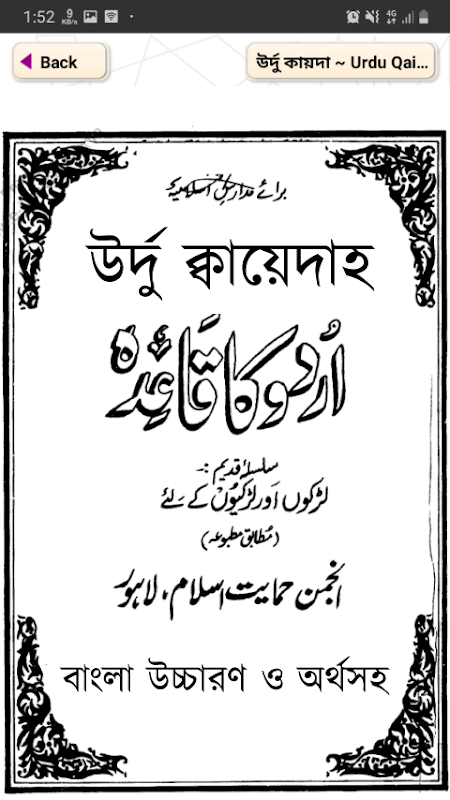 1:52 9 KB/s 4G
Back
উর্দু কায়দা ~ Urdu Qai...
برائے مدارس اسلامیہ
উর্দু ক্বায়েদাহ
اُردو کا قَاعِدہ
سلسلۂ قدیم :-
لڑکوں اَور لڑکیوں کے لئے
(مُطابق مطبوعہ)
انجمن حمایت اسلام، لاہور
বাংলা উচ্চারণ ও অর্থসহ